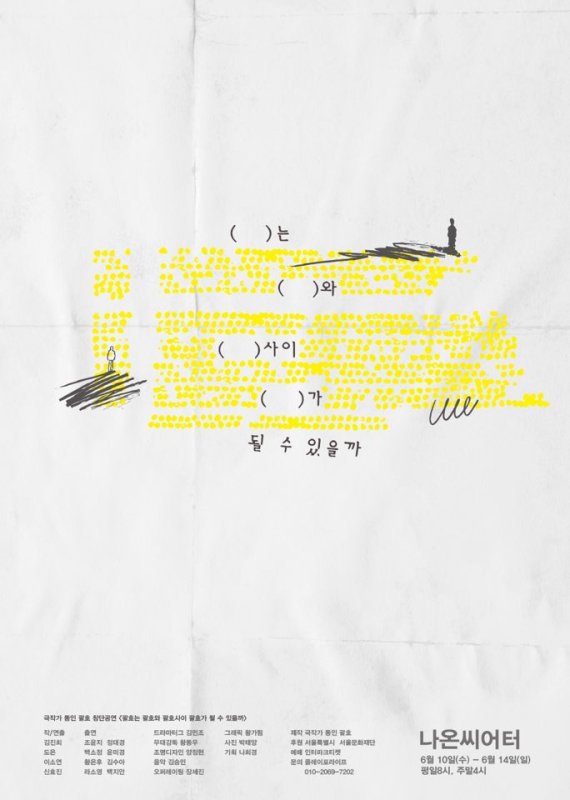 (    )는
(    )와
(    )사이
(    )가
될 수 있을까
극작가 동인 괄호 창단공연 <괄호는 괄호와 괄호사이 괄호가 될 수 있을까>
작/연출 출연 드라마터그 김민조 그래픽 황가림 제작 극작가 동인 괄호
김진희 조윤지 정대경 무대감독 황동우 사진 박태양 후원 서울특별시 서울문화재단
도은 백소정 윤미경 조명디자인 양정현 기획 나희경 예매 인터파크티켓
이소연 황은후 김수아 음악 김승민 문의 플레이포라이프
신효진 라소영 백지안 오퍼레이팅 장세진 010-2069-7202
나온씨어터
6월 10일(수) – 6월 14일(일)
평일8시, 주말4시